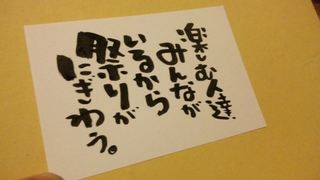 楽しむ人達
みんなが
いるから
祭りが
にぎわう。